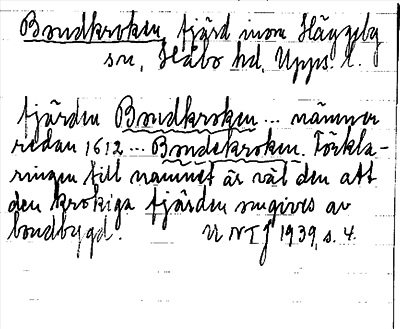 Bondkroken, fjärd inom Häggeby
sn, Håbo hd, Upps. l.
fjärden Bondkroken ... nämner
redan 1612 ... Bondekroken. Förkla-
ringen till namnet är väl den att
den krokiga fjärden omgives av
bondbygd. UNTJ 1939, s. 4.